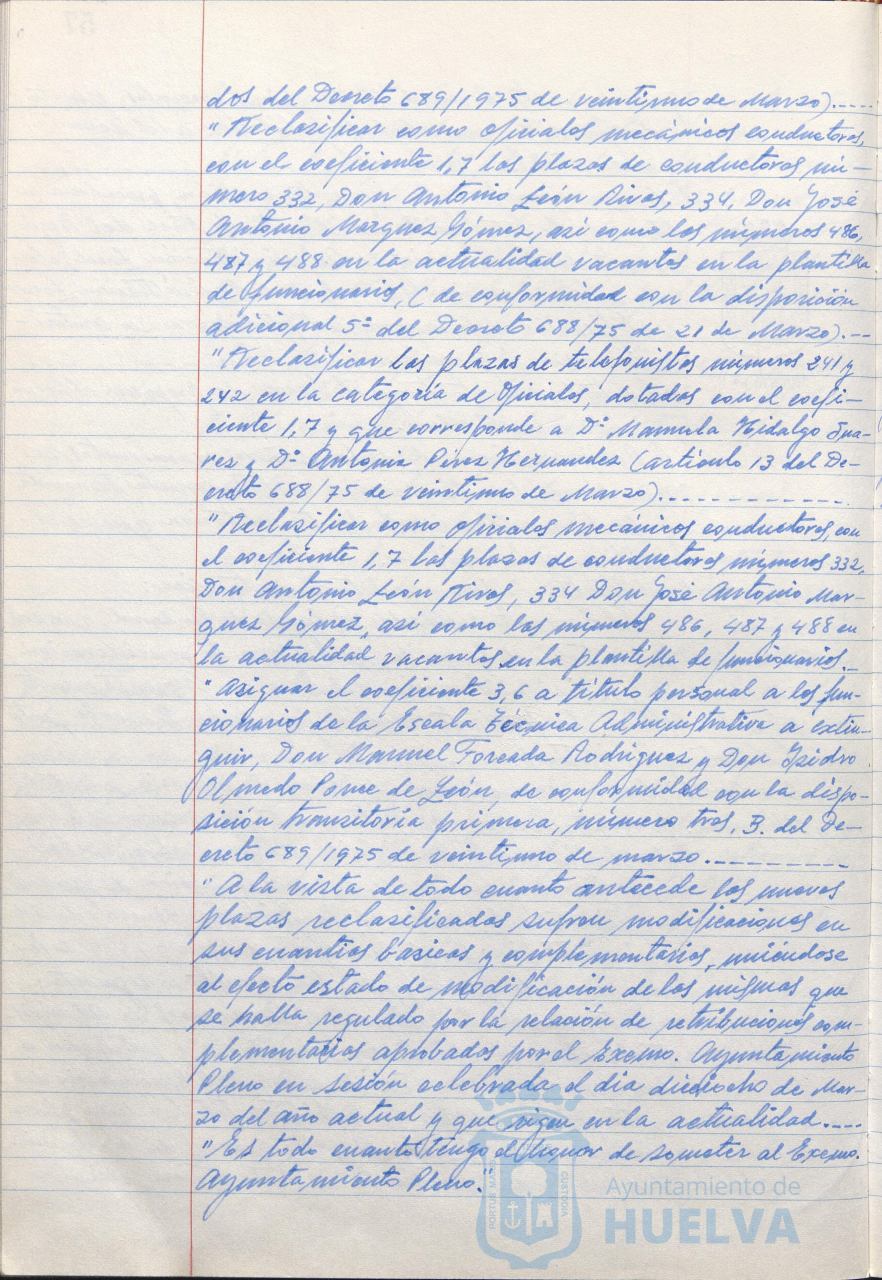 dos del Decreto 689/1975 de veintiuno de Marzo).----
"Reclasificar como oficiales mecánicos conductores,
con el coeficiente 1,7 las plazas de conductores nú-
mero 332, Don Antonio León Rivas, 334, Don José
Antonio Marquez Gómez, así como los números 486,
487 y 488 en la actualidad vacantes en la plantilla
de funcionarios, (de conformidad con la disposición
adicional 5ª del Decreto 688/75 de 21 de Marzo).--
"Reclasificar las plazas de telefonistas números 241 y
242 en la categoría de Oficiales, dotados con el coefi-
ciente 1,7 y que corresponde a Dª Manuela Hidalgo Sua-
rez y Dª Antonia Pérez Hernandez (artículo 13 del De-
creto 688/75 de veintiuno de Marzo).------------
"Reclasificar como oficiales mecánicos conductores, con
el coeficiente 1,7 las plazas de conductores números 332,
Don Antonio León Rivas, 334 Don José Antonio Mar-
quez Gómez, así como los números 486, 487 y 488 en
la actualidad vacantes en la plantilla de funcionarios.-
"Asignar el coeficiente 3,6 a título personal a los fun-
cionarios de la Escala Técnica Administrativa a extin-
guir, Don Manuel Forcada Rodriguez y Don Isidro
Olmedo Ponce de León, de conformidad con la dispo-
sición transitoria primera, número tres, B. del De-
creto 689/1975 de veintiuno de marzo.----------
"A la vista de todo cuanto antecede las nuevas
plazas reclasificadas sufren modificaciones en
sus cuantías básicas y complementarias, uniéndose
al efecto estado de modificación de las mismas que
se halla regulado por la relación de retribuciones com-
plementarias aprobadas por el Excmo. Ayuntamiento
Pleno en sesión celebrada el día dieciocho de Mar-
zo del año actual y que rigen en la actualidad.----
"Es todo cuanto tengo el honor de someter al Excmo.
Ayuntamiento Pleno."
PORTUS MA
CUSTODIA
Ayuntamiento de
HUELVA